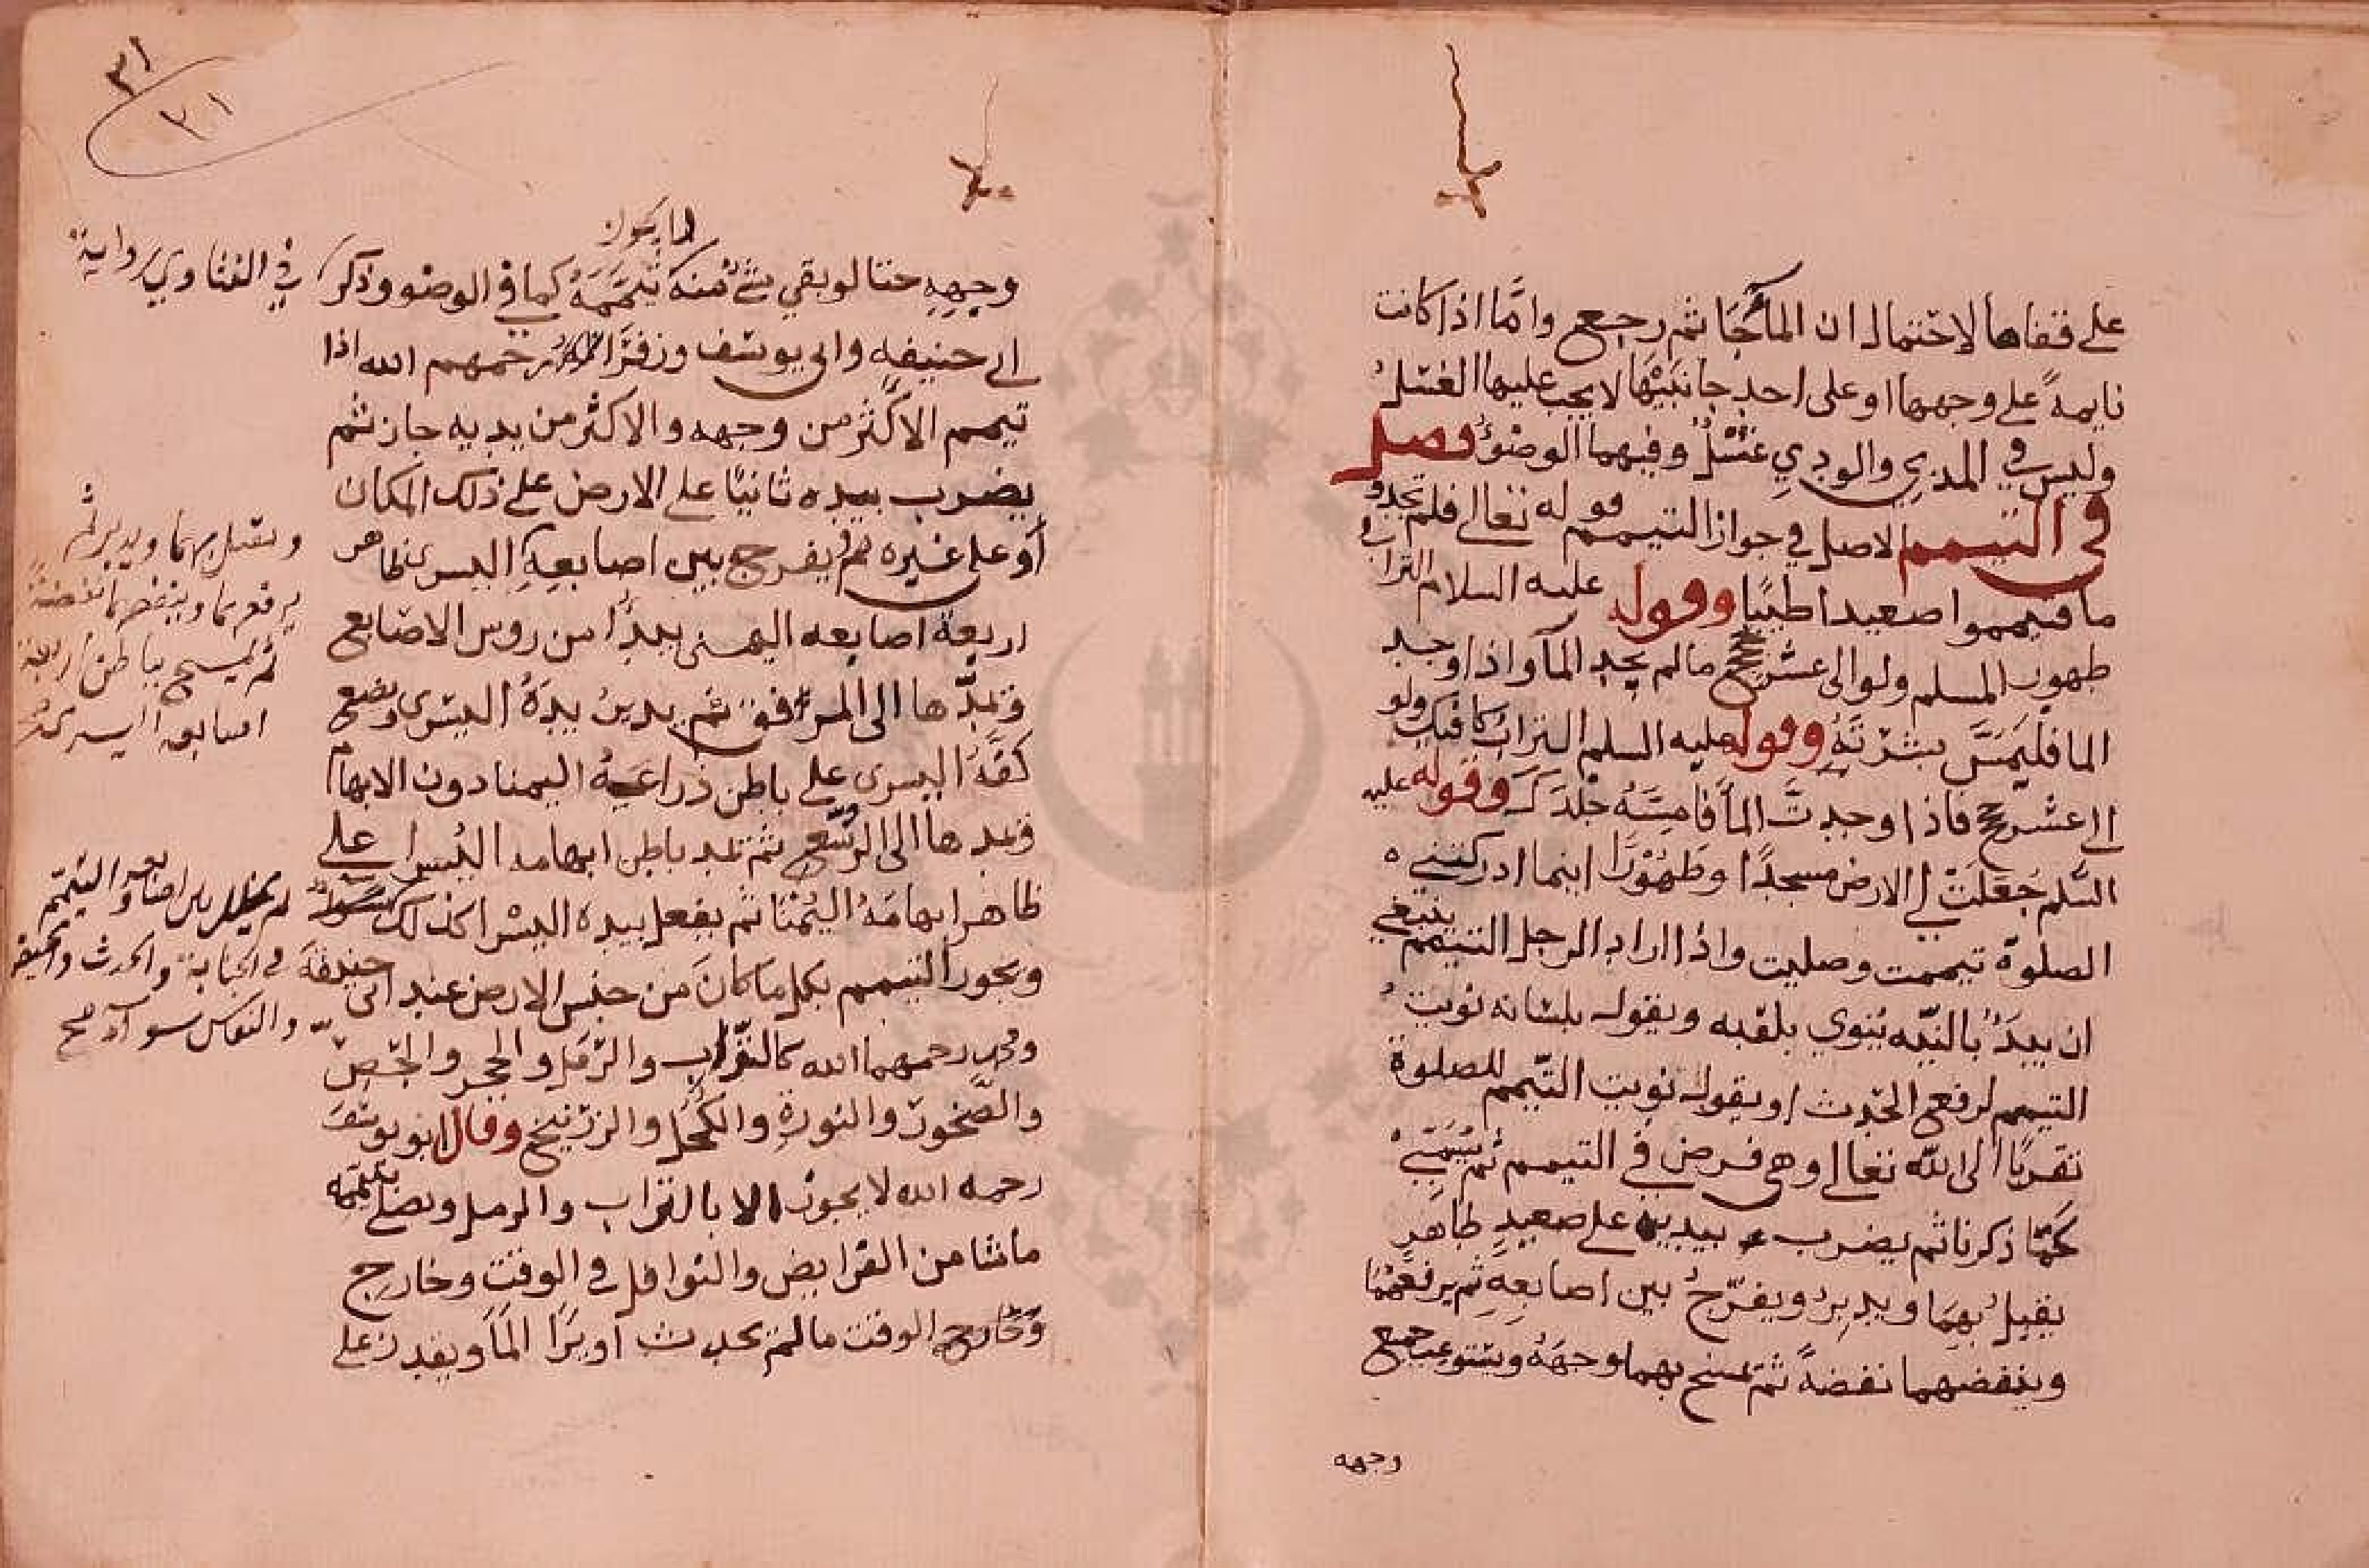 على قفاها لاحتمال ان الماء جا ثم رجع واما اذا كانت
نايمة على وجهها او على احد جانبيها لا يجب عليها الغسل
وليس في المدي والودي غسل وفيهما الوضوء فصل
في التيمم الاصل في جواز التيمم قوله تعالى فلم تجدو
ما فتيمموا صعيدا طيبا وقوله عليه السلام التراب
طهور المسلم ولوالى عشر حجج ما لم يجد الما واذا وجد
الما فليمس بشرته وقوله عليه السلم التراب كافيك ولو
الى عشر حجج فاذا وجدت الما فامسه جلدك وقوله عليه
السلم جعلت لي الارض مسجدا وطهورا اينما ادركتني
الصلوة تيممت وصليت واذا اراد الرجل التيمم ينبغي
ان يبدا بالنيه ينوي بلقبه ويقول بلسانه نويت
التيمم لرفع الحدث او يقول نويت التيمم للصلوة
تقربا الى الله تعالى وهي فرض في التيمم ثم
كما ذكرنا ثم يضرب بيديه على صعيد طاهر
يقبل بهما ويدبر ويفرج بين اصابعه ثم يرفعهما
وينفضهما نفضة ثم يمسح بهما وجهه ويستوعب جميع
وجهه
٣١
٢١
وجهه حتا لو بقي شئ منه تيممه كما في الوضو وذكر في الفتاوي رواية
لا يجوز
ابي حنيفه وابي يوسف وزفر رحمهم الله اذا
تيمم الاكثر من وجهه والاكثر من يديه جاز ثم
يضرب بيده ثانيا على الارض على ذلك المكان
او على غيره ثم يفرج بين اصابعه اليسرى ظاهر
اربعة اصابعه اليمنى يبدا من روس الاصابع
ويمدها الى المرفق ثم يدير يده اليسرى ويضع
كفه اليسرى على باطن ذراعيه اليمنا دون الابهام
ويمدها الى الرسغ ثم يمد باطن ابهامه اليسرا على
ظاهر ابهامه اليمنا ثم يفعل بيده اليسرا كذلك
ويجوز التيمم بكل ما كان من جنس الارض عند ابي حنيفة
ومحمد رحمهما الله كالتراب والرمل والحجر والجص
والصخور والنورة والكحل والزرنيخ وقال ابو يوسف
رحمه الله لا يجوز الا بالتراب والرمل ويصلي بتيممه
ما شا من الفرايض والنوافل في الوقت وخارج
وخارج الوقت ما لم يحدث او يرا الما ويقدر على
ويقبل بهما ويدبر ثم
يرفعهما وينفضهما نفضة
ثم يمسح بباطن اربعة
اصابعه اليسرى
ثم يخلل بين اصابعه والتيمم
في الجنابة والحدث والحيض
والنفاس سوآ صح